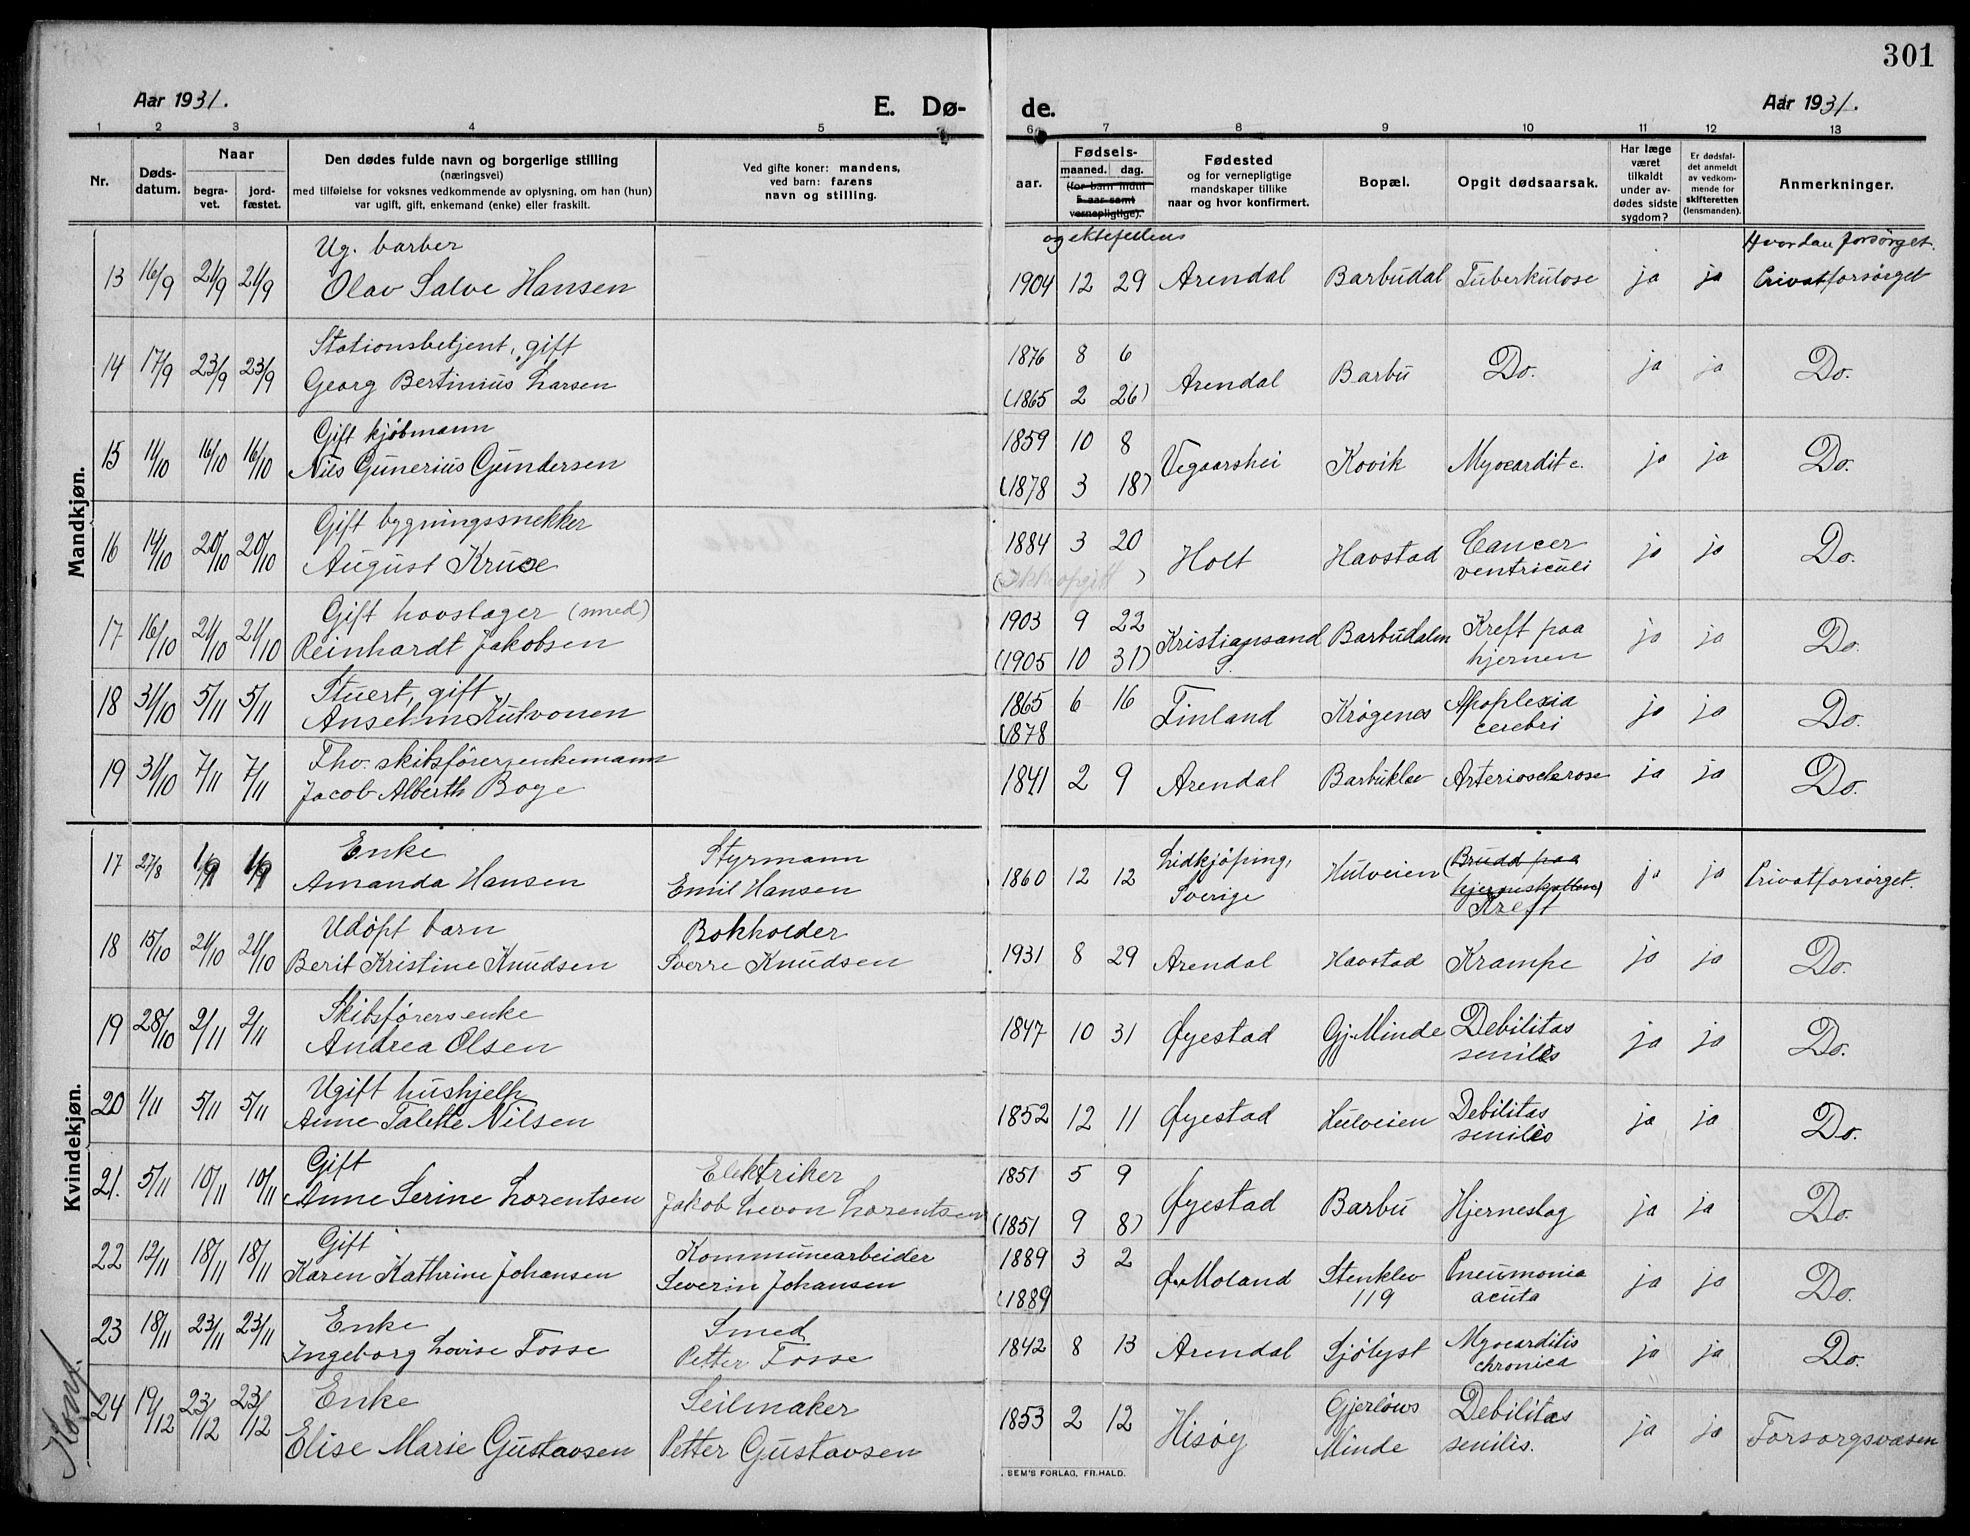 301
Aar 1931.
E. Dø-
de.
Aar 1931.
1 2 3 4 5 6 7 8 9 10 11 12 13
Nr.
Døds-
datum.
Naar
begra-
vet.
jord-
fæstet.
Den dødes fulde navn og borgerlige stilling
(næringsvei)
med tilføielse for voksnes vedkommende av oplysning, om han (hun)
var ugift, gift, enkemand (enke) eller fraskilt.
Ved gifte koner: mandens,
ved barn: farens
navn og stilling.
Fødsels-
aar.
maaned.
dag.
(for barn indtil
5 aar samt
vernepligtige).
og ektefellens
Fødested
og for vernepligtige
mandskaper tillike
naar og hvor konfirmert.
Bopæl.
Opgit dødsaarsak.
Har læge
været
tilkaldt
under av-
dødes sidste
sygdom?
Er dødsfal-
det anmeldt
av vedkom-
mende for
skifteretten
(lensmanden).
Anmerkninger.
Hvordan forsørget.
Mandkjøn.
Ug. barber
13 16/9 21/9 21/9 Olav Salve Hansen 1904 12 29 Arendal Barbudal Tuberkulose ja ja Privatforsørget
Stationsbetjent, gift 1876 8 6
14 17/9 23/9 23/9 Georg Bertinius Larsen Arendal Barbu Do. ja ja Do.
(1865 2 26)
Gift kjøbmann 1859 10 8
15 11/10 16/10 16/10 Nils Gunerius Gundersen Vegaarshei Kovik Myocardit c. ja ja Do.
(1878 3 18)
Gift bygningssnekker 1884 3 20 Cancer
16 14/10 20/10 20/10 August Kruse Holt Havstad ventriculi ja ja Do.
(Ikke opgitt )
Gift hovslager (smed) 1903 9 22 Kreft paa
17 16/10 21/10 21/10 Reinhardt Jakobsen Kristiansand S. Barbudalen hjernen ja ja Do.
(1905 10 31)
Stuert, gift 1865 6 16 Apoplexia
18 31/10 5/11 5/11 Anselm Kulvonen Finland Krøgenes cerebri ja ja Do.
(1878
Fhv. skibsfører, enkemann
19 31/10 7/11 7/11 Jacob Alberth Boge 1841 2 9 Arendal Barbuklev Arteriosclerose ja ja Do.
Kvindekjøn.
Enke Styrmann Lidkjøping, (Brudd paa
17 27/8 1/9 1/9 Amanda Hansen Emil Hansen 1860 12 12 Sverige Hulveien hjerneskallen) Kreft ja ja Privatforsørget.
Udøpt barn Bokholder
18 15/10 21/10 21/10 Berit Kristine Knudsen Sverre Knudsen 1931 8 29 Arendal Havstad Krampe ja ja Do.
Skibsførers enke Debilitas
19 28/10 2/11 2/11 Andrea Olsen 1847 10 31 Øyestad Gj. Minde senilis ja ja Do.
Ugift hushjelp Debilitas
20 1/11 5/11 5/11 Anne Talette Nilsen 1852 12 11 Øyestad Hulveien senilis ja ja Do.
Gift Elektriker 1851 5 9
21. 5/11 10/11 10/11 Anne Serine Lorentsen Jakob Levon Lorentsen Øyestad Barbu Hjerneslag ja ja Do.
(1851 9 8)
Gift Kommunearbeider 1889 3 2 Stenklev Pneumonia
22 12/11 18/11 18/11 Karen Kathrine Johansen Severin Johansen Ø. Moland 119 acuta ja ja Do.
(1889
Enke Smed Myocarditis
23 18/11 23/11 23/11 Ingeborg Lovise Fosse Petter Fosse 1842 8 13 Arendal Sjølyst chronica ja ja Do.
Enke Seilmaker Gjerløws Debilitas
24 19/12 23/12 23/12 Elise Marie Gustavsen Petter Gustavsen 1853 2 12 Hisøy Minde senilis. ja ja Forsorgsvæsen
Konf.
SEM'S FORLAG, FR.HALD.